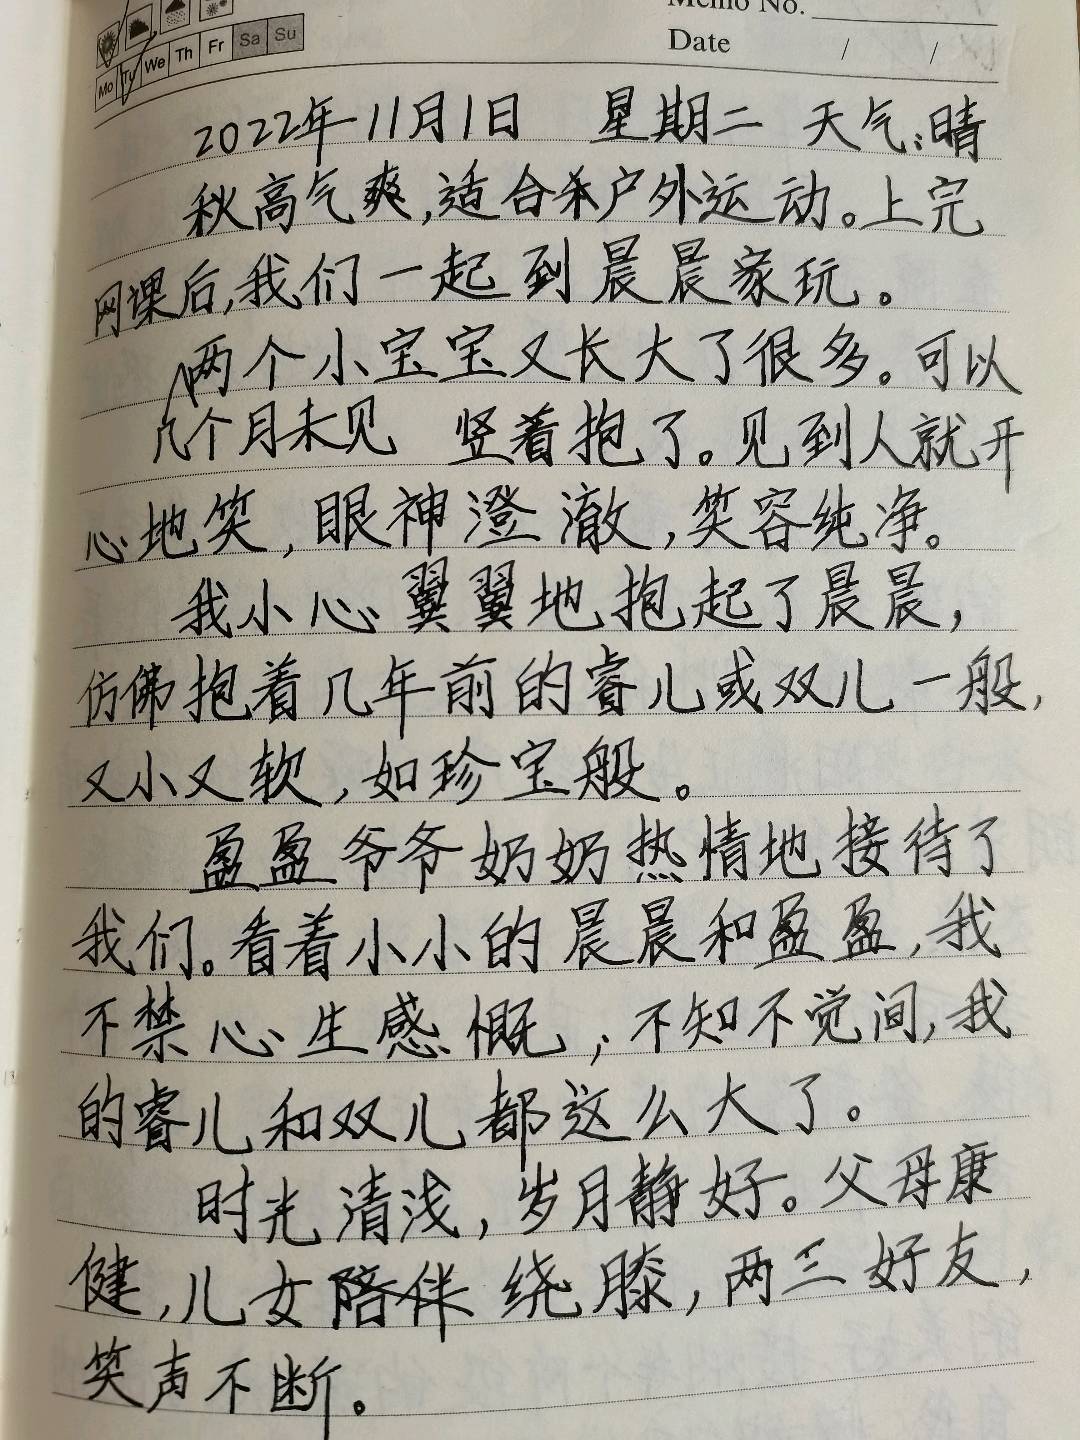 Memo No.
Mo Tu We Th Fr Sa Su
Date / /
2022年11月1日 星期二 天气:晴
秋高气爽,适合户外运动。上完
网课后,我们一起到晨晨家玩。
两个小宝宝又长大了很多。可以
几个月未见 竖着抱了。见到人就开
心地笑,眼神澄澈,笑容纯净。
我小心翼翼地抱起了晨晨,
仿佛抱着几年前的睿儿或双儿一般,
又小又软,如珍宝般。
盈盈爷爷奶奶热情地接待了
我们。看着小小的晨晨和盈盈,我
不禁心生感慨;不知不觉间,我
的睿儿和双儿都这么大了。
时光清浅,岁月静好。父母康
健,儿女陪伴绕膝,两三好友,
笑声不断。